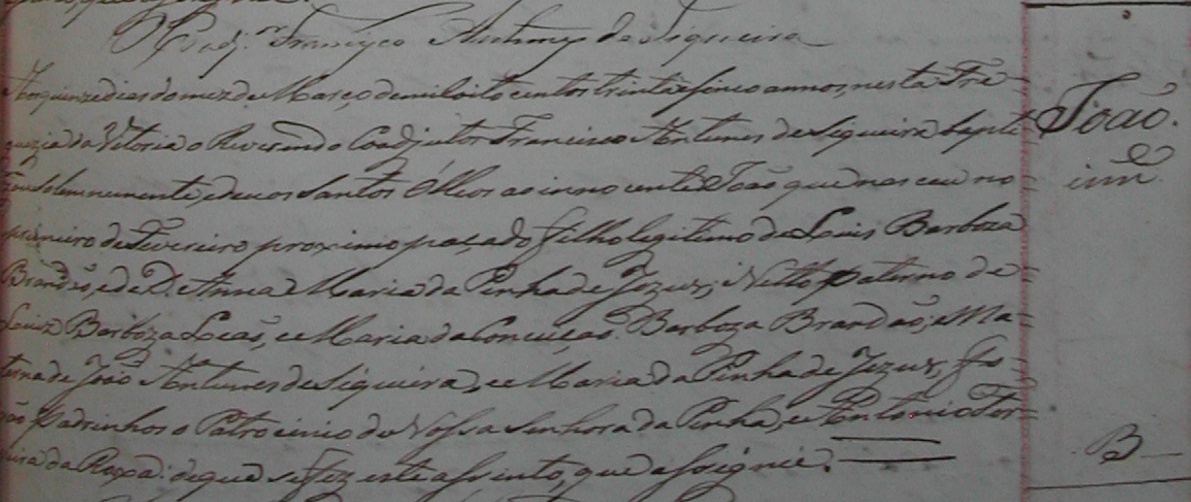 Coadj.or Francisco Antunes de Siqueira
Aos quinze dias do mez de Março de mil oito centos trinta e sinco annos, nesta Fre=
guezia da Vitoria o Reverendo Coadjutor Francisco Antunes de Siqueira bapti=
zou solemnemente, e deu os Santos Olleos ao innocente João que nasceu no
primeiro de Fevereiro proximo paçado filho legitimo de Luis Barboza
Brandão, e de D. Anna Maria da Penha de Jezus; Netto paterno de
Luiz Barboza Leão, e Maria da Conceição Barboza Brandão, e Ma=
terna de João Antunes de Siqueira, e Maria da Penha de Jezus, fo=
rão Padrinhos o Patrocinio de Nossa Senhora da Penha, e Antonio
da Roxa: de que se fez este assento, que assignei.
João.
B